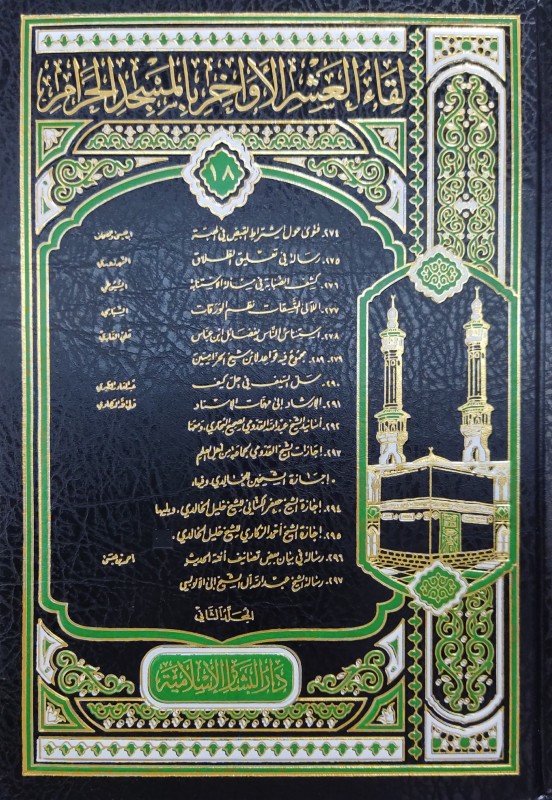 لقاء العشر الأواخر بالمسجد الحرام
١٨
٢٧٤. فتوى حول اشتراط القبض في الهبة
٢٧٥. رسالة في تعليق الطلاق
٢٧٦. كشف الضبابة في مسألة الاستنابة السيوطي
٢٧٧. اللآلئ المتسقات نظم الورقات
٢٧٨. استئناس الناس بفضائل ابن عباس علي القاري
٢٧٩. ٢٨٩. مجموع فيه فوائد لابن شيخ الحزاميين
٢٩٠. سل السيف في حل كيف
٢٩١. الإرشاد إلى مهمات الإسناد
٢٩٢. أسانيد الشيخ عبد الله القدومي لصحيح البخاري
٢٩٣. إجازات الشيخ القدومي لجماعة من أهل العلم
٠ إجازة الشيخين للخالدي وفيها:
٢٩٤. إجازة الشيخ جعفر الكتاني للشيخ خليل الخالدي. ويليها
٢٩٥. إجازة الشيخ أحمد الزكاري للشيخ خليل الخالدي.
٢٩٦. رسالة في بيان بعض تصانيف أئمة الحديث
٢٩٧. رسالة الشيخ عبد الله آل الشيخ إلى الآلوسي
المجلد الثاني
دار البشائر الإسلامية